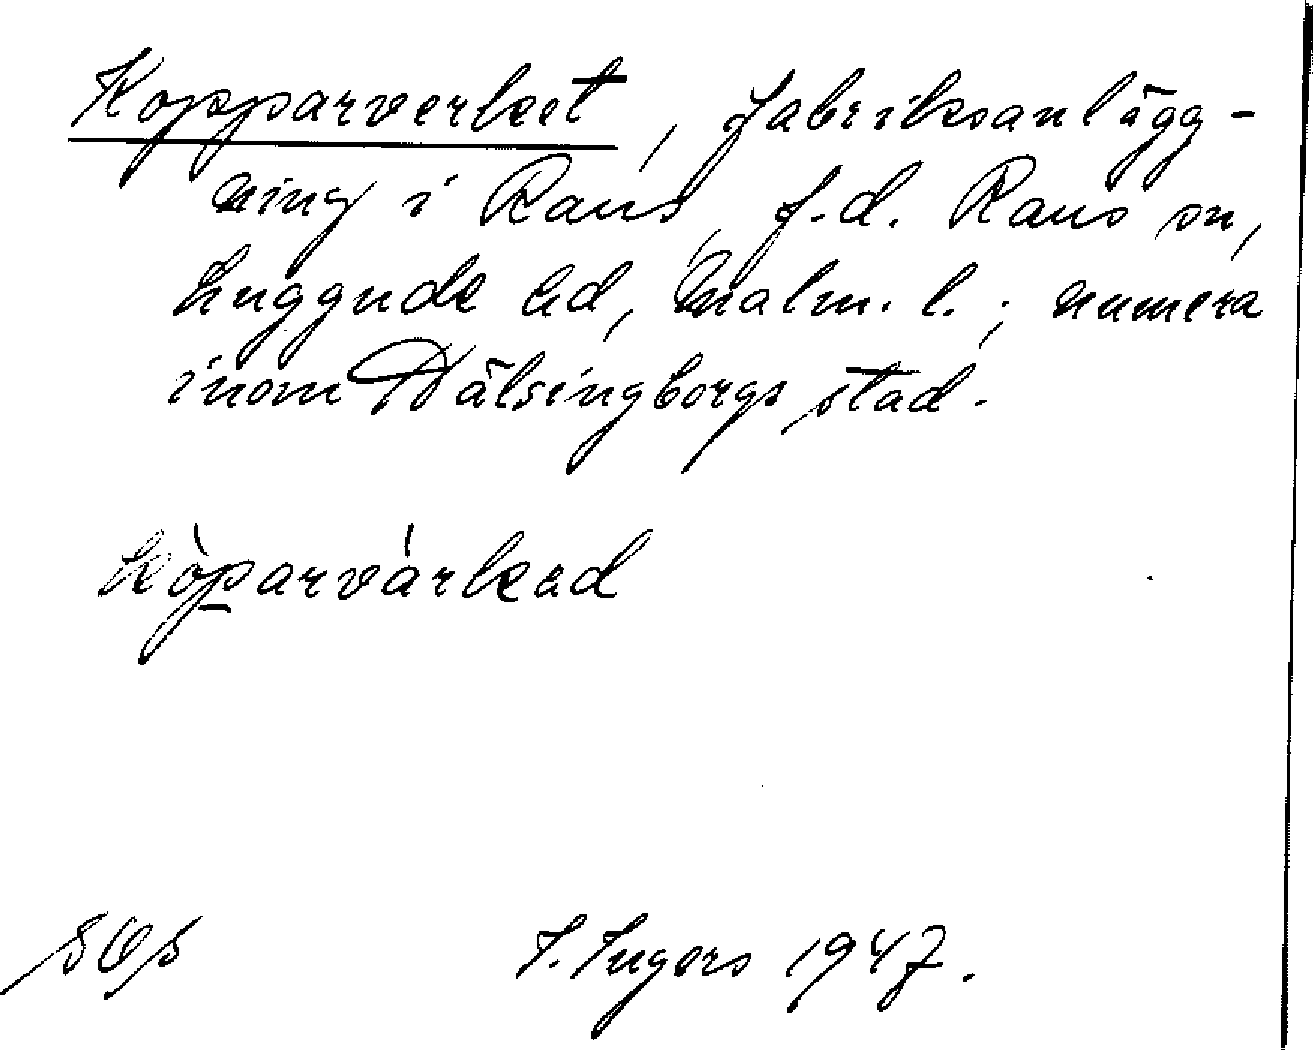 Kopparverket, fabriksanlägg-
ning i Raus, f.d. Raus sn,
Luggude hd, Malm. l.; numera
inom Hälsingborgs stad.
kòparvárkəd
SOS
I. Ingers 1947.